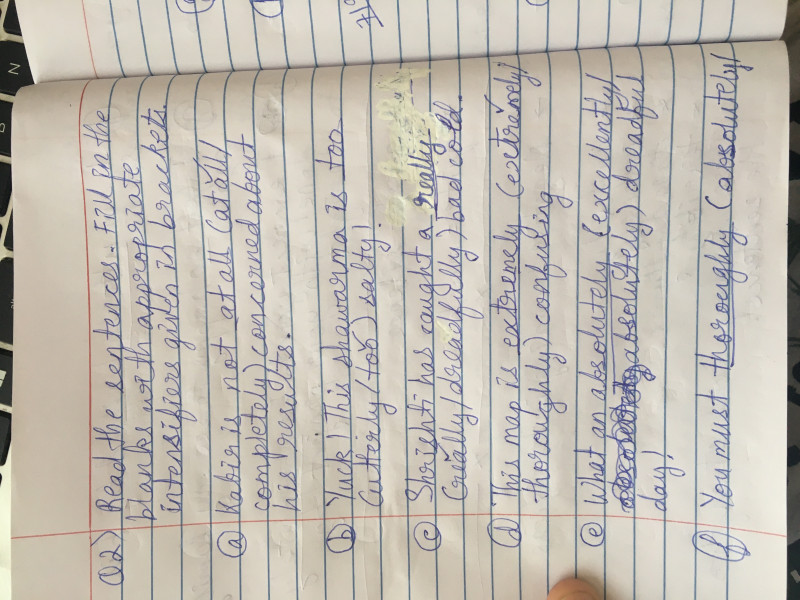 Q2) Read the sentences. Fill in the
blanks with appropriate
intensifiers given in brackets.
a) Kabir is not at all (at all/
completely) concerned about
his results.
b) Yuck! This shawarma is too
(utterly/too) salty!
c) Shrishti has caught a really
(really/dreadfully) bad cold.
d) This map is extremely (extremely/
thoroughly) confusing
e) What an absolutely (excellently/
absolutely) dreadful
day!
f) You must thoroughly (absolutely/